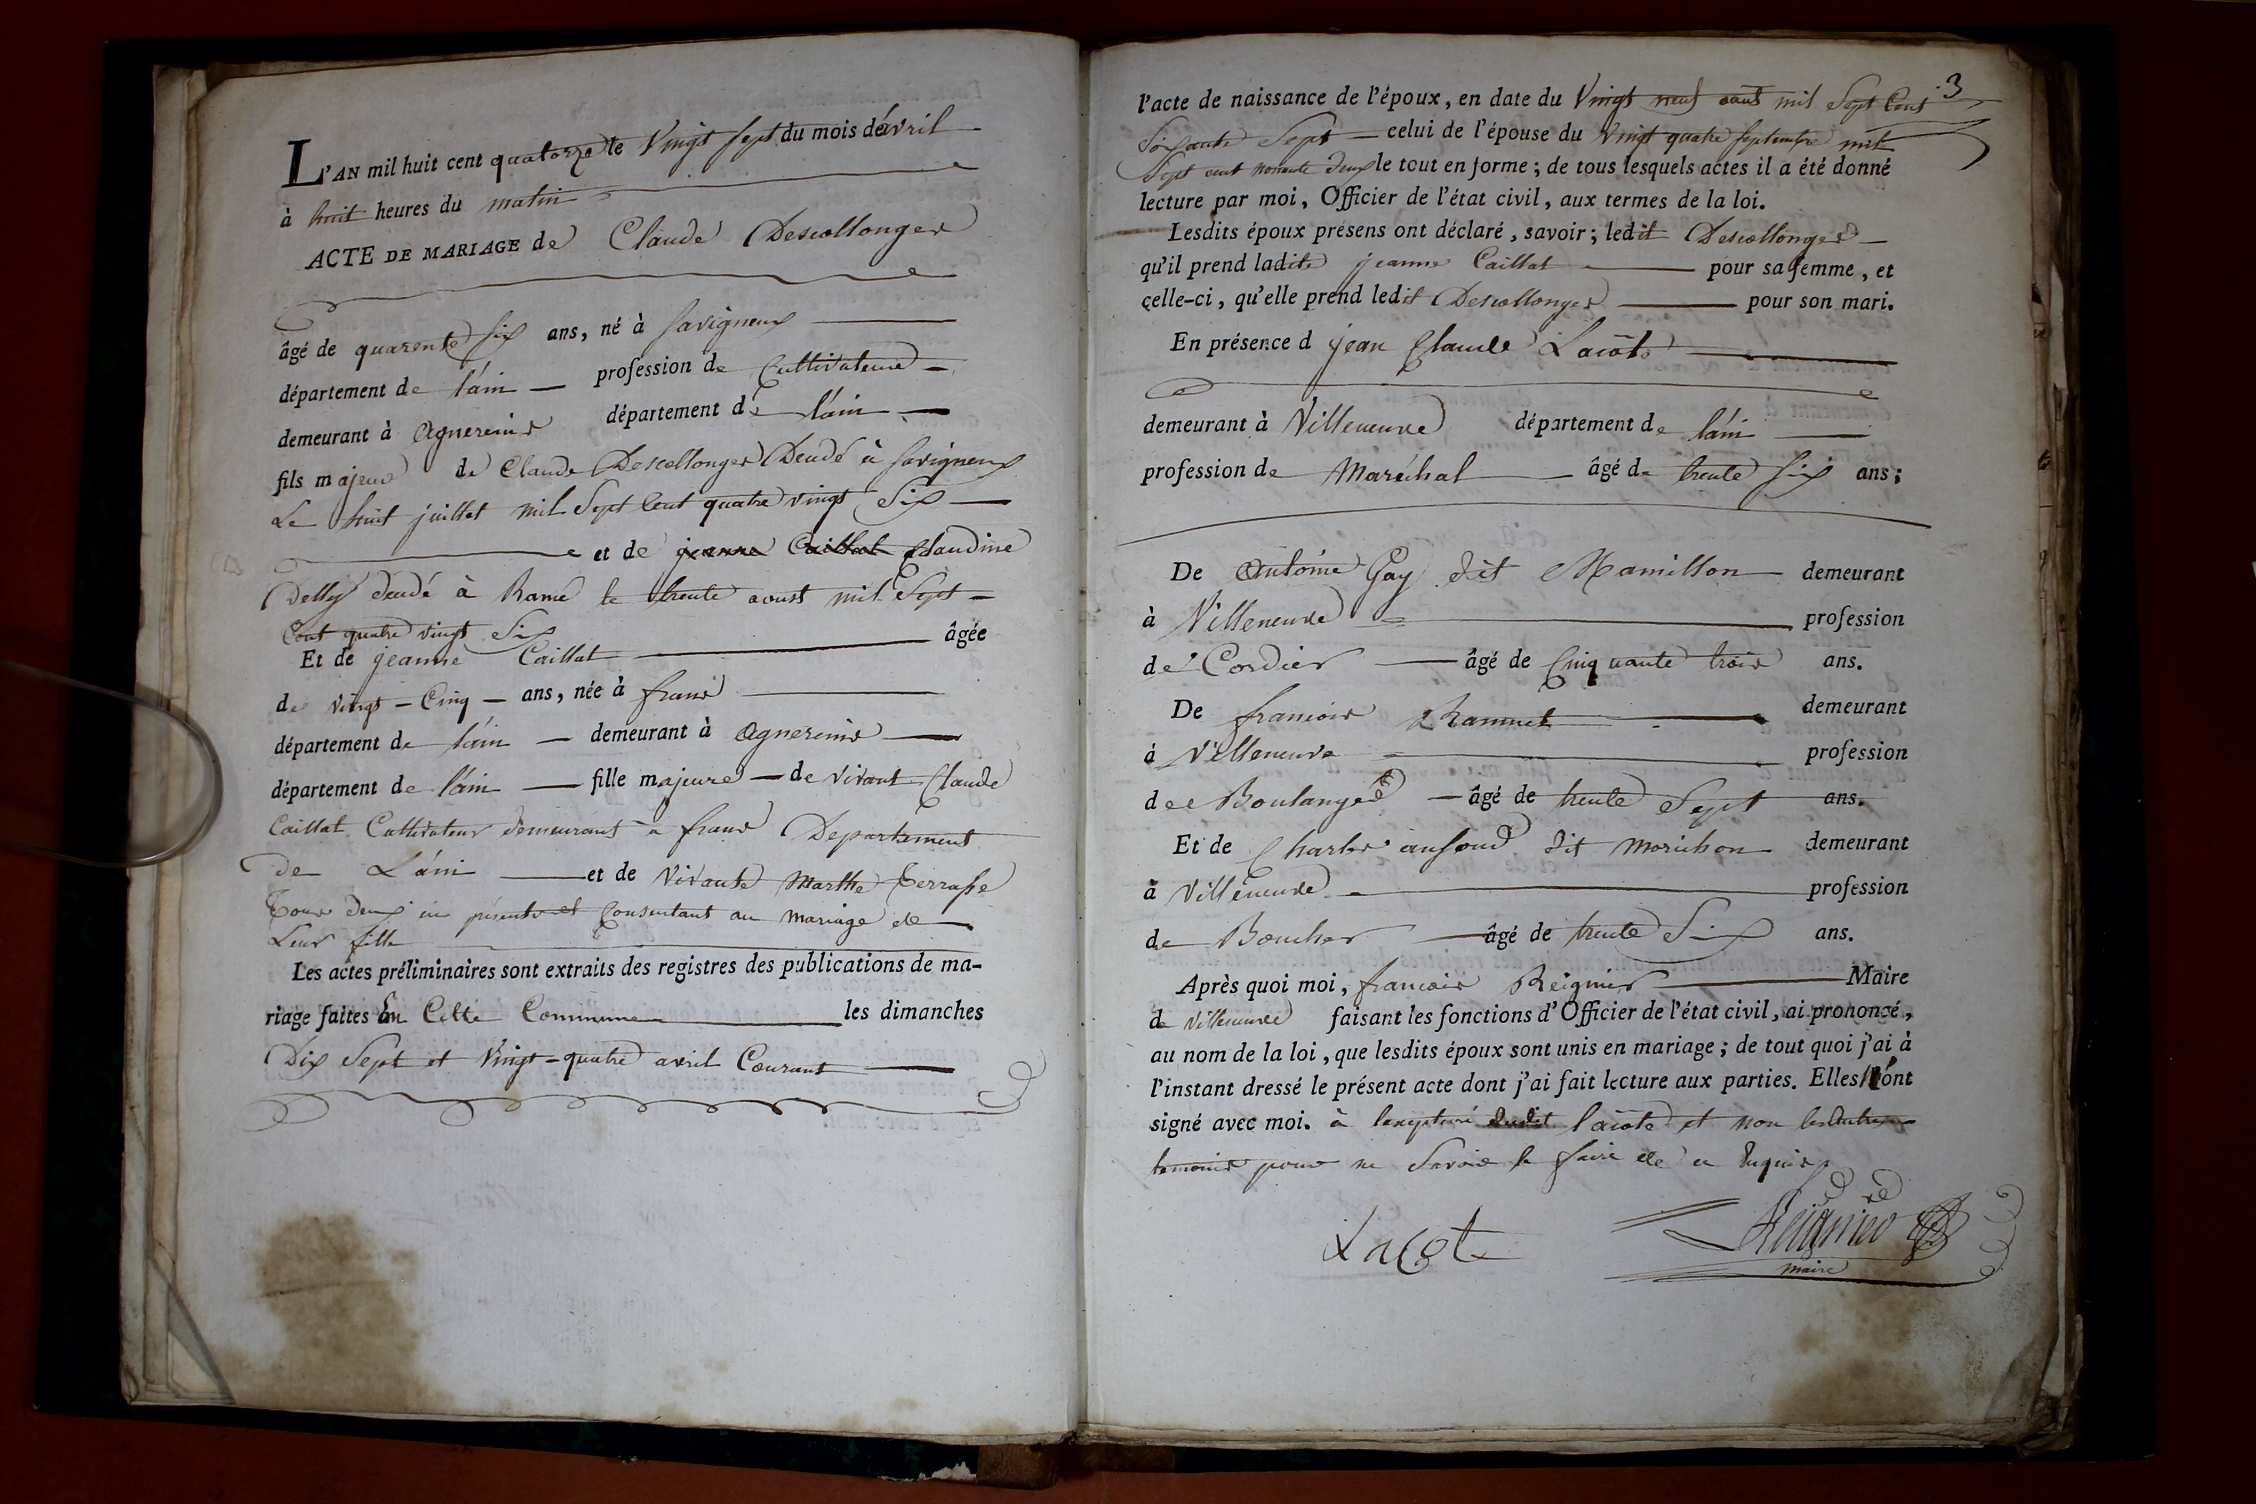 L'AN mil huit cent quatorze le Vingt Sept du mois d'avril
à huit heures du matin
ACTE DE MARIAGE de Claude Descollonges
âgé de quarente six ans, né à Savigneux
département de l'ain profession de Cultivateur
demeurant à Agnereins département de l'ain
fils majeur de Claude Descollonges Décédé à Savigneux
Le huit juillet mil Sept Cent quatre vingt Six
et de jeanne Caillat Claudine
décédé à Rancé le trente aoust mil Sept
Cent quatre vingt Six
Et de jeanne Caillat âgée
de vingt-Cinq ans, née à frans
département de l'ain demeurant à Agnereins
département de l'ain fille majeure de vivant Claude
Caillat Cultivateur demeurant à frans Departement
de L'ain et de vivante Marthe Terrasse
Tous deux ici présents et Consentant au mariage de
Leur fille
Les actes préliminaires sont extraits des registres des publications de ma-
riage faites En Cette Commune les dimanches
Dix Sept et Vingt-quatre avril Courant
3
l'acte de naissance de l'époux, en date du Vingt neuf aout mil Sept Cent
Soixante Sept celui de l'épouse du Vingt quatre septembre mil
Sept cent nonante deux le tout en forme ; de tous lesquels actes il a été donné
lecture par moi, Officier de l'état civil, aux termes de la loi.
Lesdits époux présens ont déclaré, savoir ; ledit Descollonges
qu'il prend ladite jeanne Caillat pour sa femme, et
celle-ci, qu'elle prend ledit Descollonges pour son mari.
En présence d jean Claude Lacôte
demeurant à Villeneuve département de l'ain
profession de Maréchal âgé de trente six ans ;
De Antoine Gay dit Mamillon demeurant
à Villeneuve profession
de Cordier âgé de Cinquante trois ans.
De francois demeurant
à Villeneuve profession
de Boulanger âgé de trente Sept ans.
Et de Charles dit Morichon demeurant
à Villeneuve profession
de Boucher âgé de trente Six ans.
Après quoi moi, francois Reignier Maire
de Villeneuve faisant les fonctions d'Officier de l'état civil, ai prononcé,
au nom de la loi, que lesdits époux sont unis en mariage ; de tout quoi j'ai à
l'instant dressé le présent acte dont j'ai fait lecture aux parties. Elles ont
signé avec moi. à dudit lacote et non les autres
temoins pour ne Savoir le faire de ce Enquis
Lacote
Reignier
maire